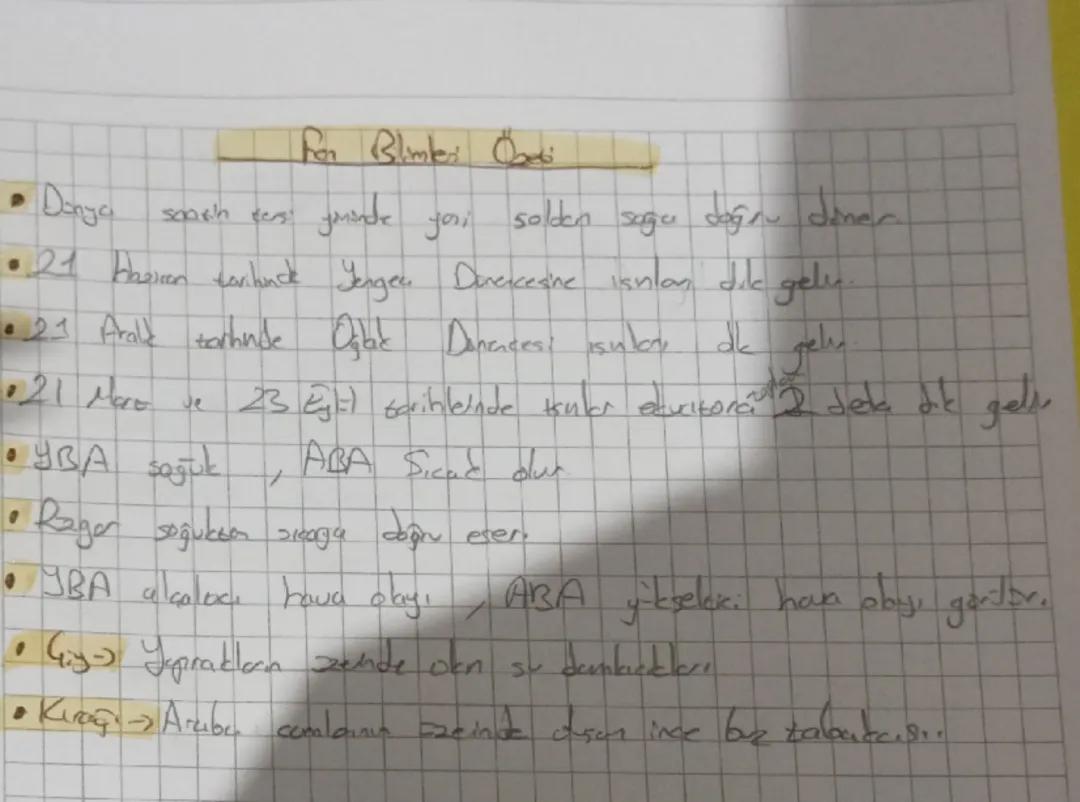 Fen Bilimleri Özeti
• Dünya saatin tersi yönünde yani soldan sağa doğru döner.
• 21 Haziran tarihinde Yengeç Dönencesine ışınlar dik gelir.
• 21 Aralık tarihinde Oğlak Dönencesi ışınlar dik gelir.
• 21 Mart ve 23 Eylül tarihlerinde ışınlar ekvatora 2 defa dik gelir
• YBA soğuk, ABA Sıcak olur
• Rüzgar soğuktan sıcağa doğru eser.
• YBA alçalıcı hava olayı, ABA yükseleci hava olayı görülür.
• Çiy → Yaprakların üzerinde olan su damlacıkları
• Kırağı → Araba camlarının üzerinde oluşan ince buz tabakası..